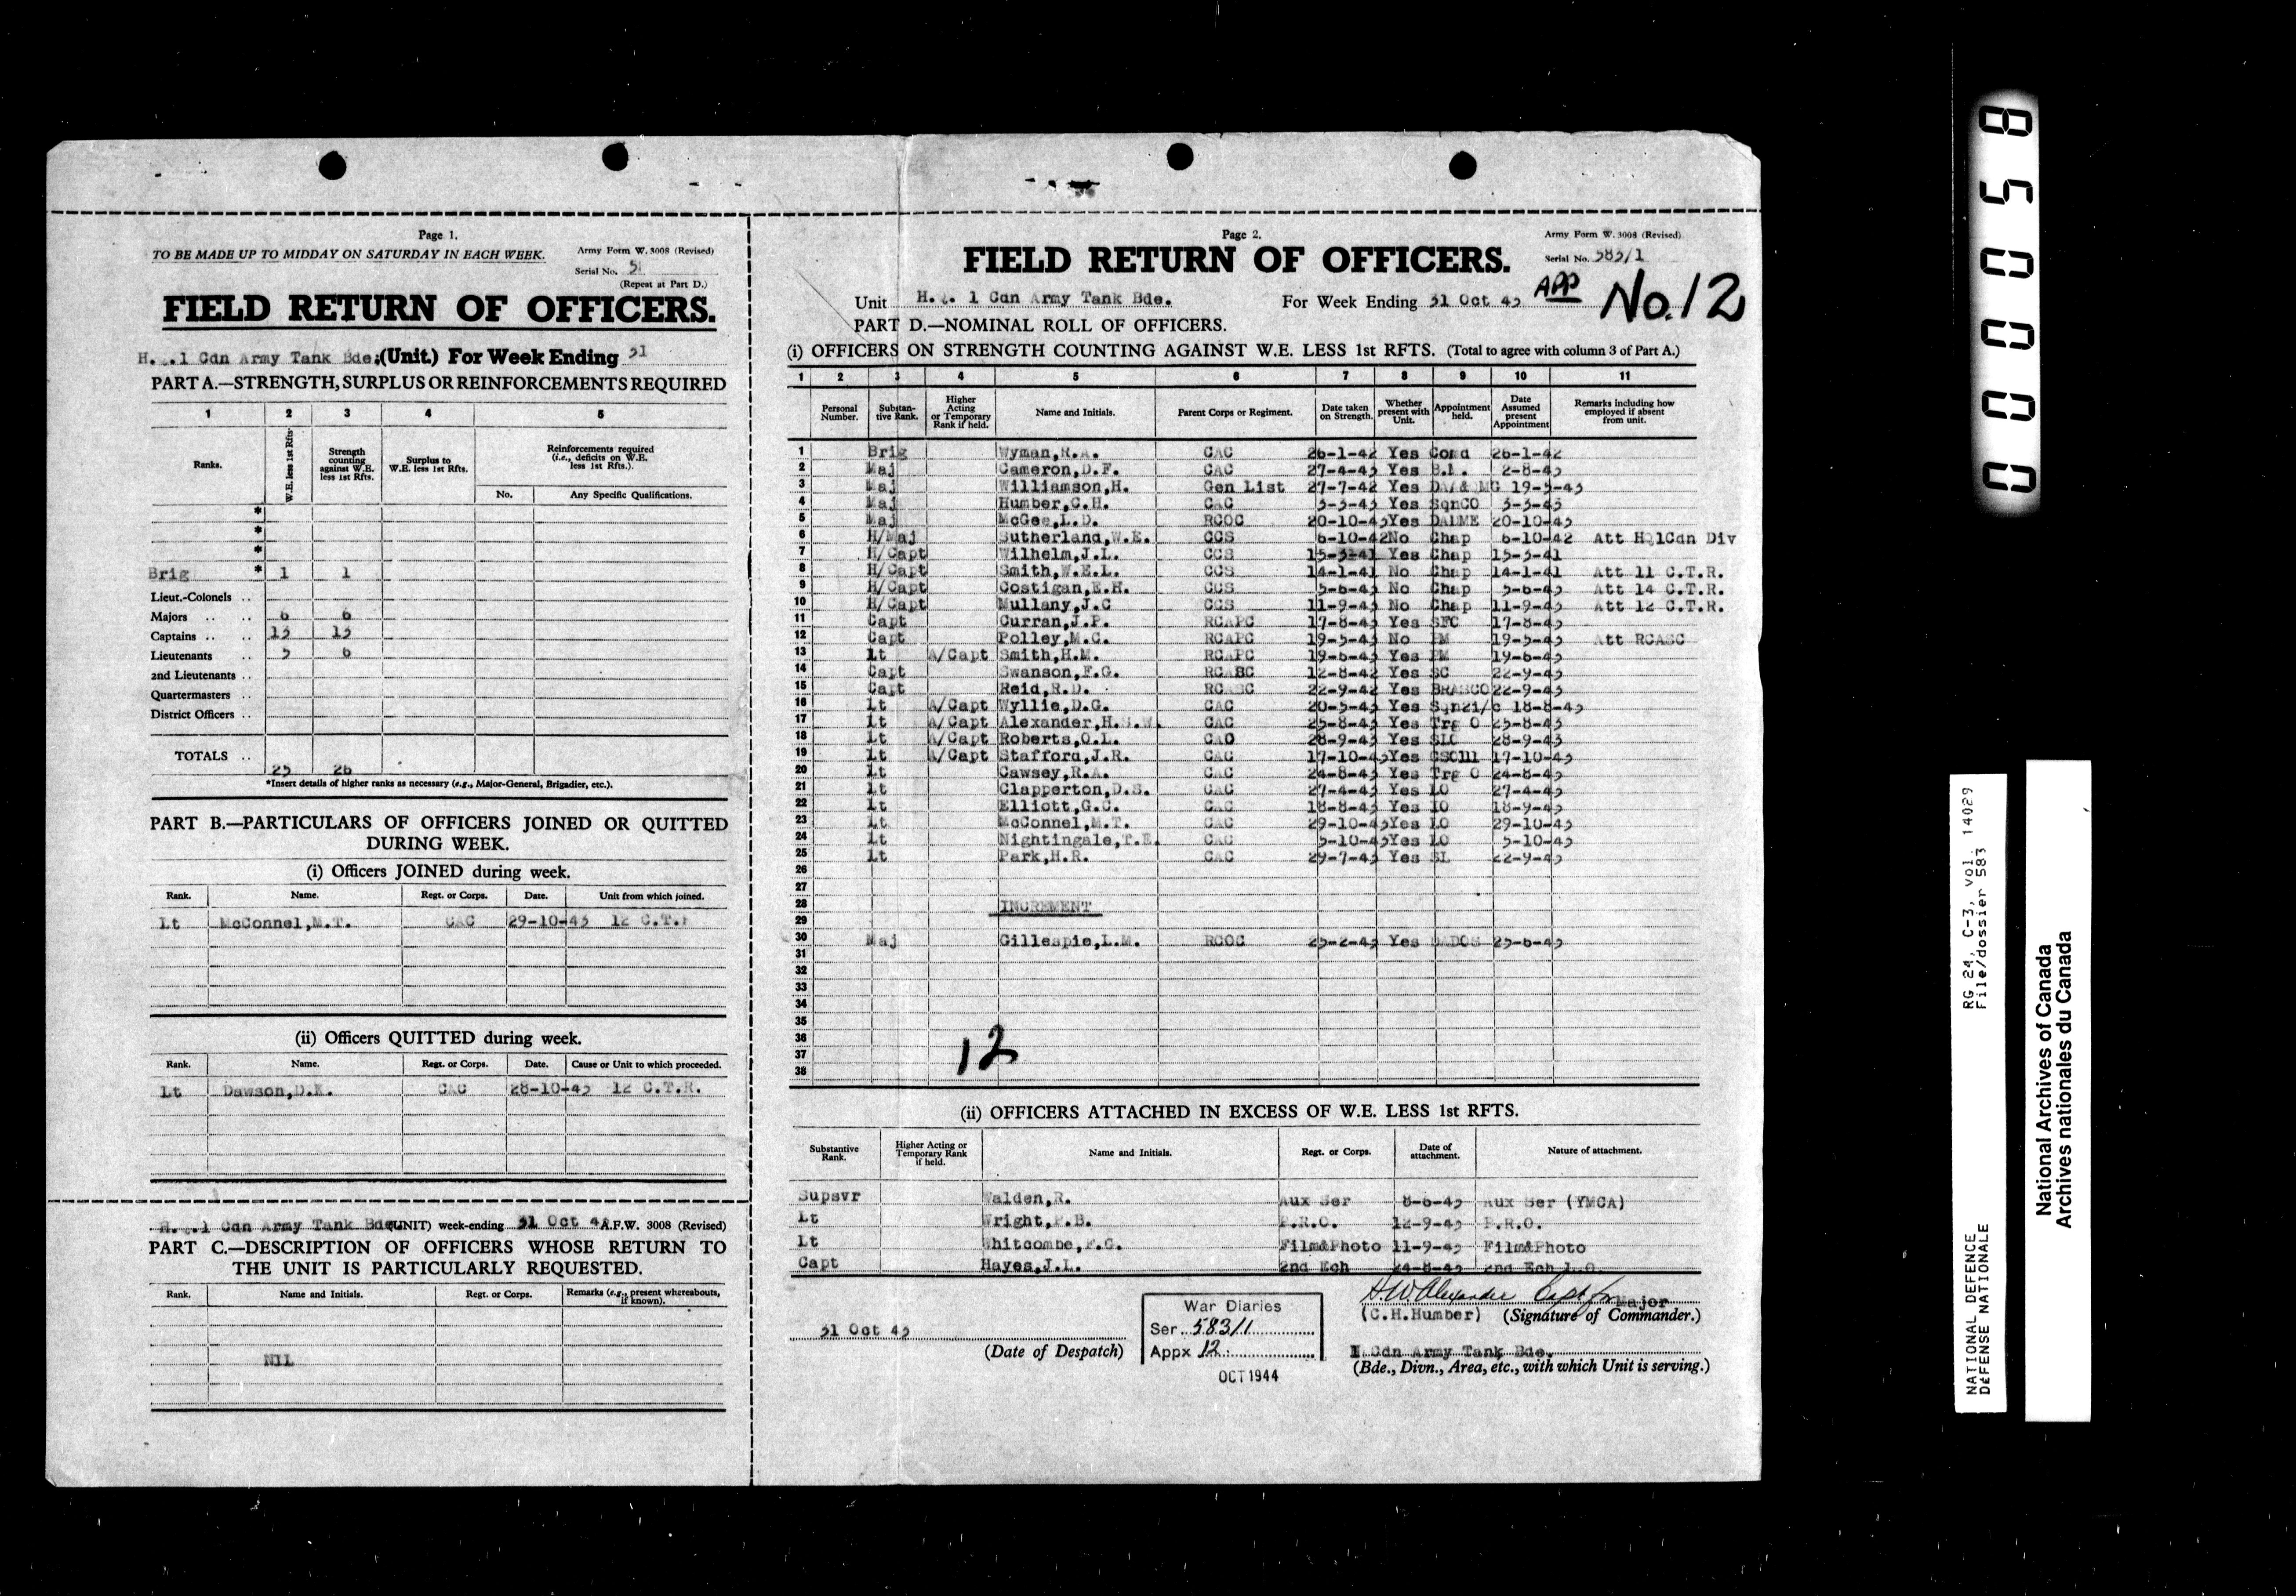 Page 1.
TO BE MADE UP TO MIDDAY ON SATURDAY IN EACH WEEK.
Army Form W. 3008 (Revised)
Serial No. 5
(Repeat at Part D.)
FIELD RETURN OF OFFICERS.
H. . 1 Cdn Army Tank Bde. (Unit.) For Week Ending 31
PART A.—STRENGTH, SURPLUS OR REINFORCEMENTS REQUIRED
1 2 3 4 5
Ranks. W.E. less 1st Rfts. Strength counting against W.E. less 1st Rfts. Surplus to W.E. less 1st Rfts. Reinforcements required (i.e., deficits on W.E. less 1st Rfts.).
No. Any Specific Qualifications.
*
*
*
Brig * 1 1
Lieut.-Colonels ..
Majors .. .. 6 6
Captains .. .. 13 13
Lieutenants .. 5 6
2nd Lieutenants ..
Quartermasters ..
District Officers ..
TOTALS .. 25 26
*Insert details of higher ranks as necessary (e.g., Major-General, Brigadier, etc.).
PART B.—PARTICULARS OF OFFICERS JOINED OR QUITTED
DURING WEEK.
(i) Officers JOINED during week.
Rank. Name. Regt. or Corps. Date. Unit from which joined.
Lt McConnel,M.T. CAC 29-10-43 12 C.T.R
(ii) Officers QUITTED during week.
Rank. Name. Regt. or Corps. Date. Cause or Unit to which proceeded.
Lt Dawson,D.K. CAC 28-10-43 12 C.T.R.
H. . 1 Cdn Army Tank Bde (UNIT) week-ending 31 Oct 4 A.F.W. 3008 (Revised)
PART C.—DESCRIPTION OF OFFICERS WHOSE RETURN TO
THE UNIT IS PARTICULARLY REQUESTED.
Rank. Name and Initials. Regt. or Corps. Remarks (e.g., present whereabouts, if known).
NIL
Page 2.
Army Form W. 3008 (Revised)
FIELD RETURN OF OFFICERS.
Serial No. 583/1
APP No.12
Unit H. . 1 Cdn Army Tank Bde. For Week Ending 31 Oct 43
PART D.—NOMINAL ROLL OF OFFICERS.
(i) OFFICERS ON STRENGTH COUNTING AGAINST W.E. LESS 1st RFTS. (Total to agree with column 3 of Part A.)
1 2 3 4 5 6 7 8 9 10 11
Personal Number. Substantive Rank. Higher Acting or Temporary Rank if held. Name and Initials. Parent Corps or Regiment. Date taken on Strength. Whether present with Unit. Appointment held. Date Assumed present Appointment Remarks including how employed if absent from unit.
1 Brig Wyman,R.A. CAC 26-1-42 Yes Comd 26-1-42
2 Maj Cameron,D.F. CAC 27-4-43 Yes B.M. 2-8-43
3 Maj Williamson,H. Gen List 27-7-42 Yes DAA&QMG 19-5-43
4 Maj Humber,C.H. CAC 3-3-43 Yes SqnCO 3-3-43
5 Maj McGee,L.D. RCOC 20-10-43 Yes DADME 20-10-43
6 H/Maj Sutherland,W.E. CCS 6-10-42 No Chap 6-10-42 Att HQ1Cdn Div
7 H/Capt Wilhelm,J.L. CCS 15-3-41 Yes Chap 15-3-41
8 H/Capt Smith,W.E.L. CCS 14-1-41 No Chap 14-1-41 Att 11 C.T.R.
9 H/Capt Costigan,E.H. CCS 5-6-43 No Chap 5-6-43 Att 14 C.T.R.
10 H/Capt Mullany,J.C CCS 11-9-43 No Chap 11-9-43 Att 12 C.T.R.
11 Capt Curran,J.P. RCAPC 17-8-43 Yes SFC 17-8-43
12 Capt Polley,M.C. RCAPC 19-5-43 No PM 19-5-43 Att RCASC
13 Lt A/Capt Smith,H.M. RCAPC 19-6-43 Yes PM 19-6-43
14 Capt Swanson,F.G. RCASC 12-8-42 Yes SC 22-9-43
15 Capt Reid,R.D. RCASC 22-9-42 Yes BRASCO 22-9-43
16 Lt A/Capt Wyllie,D.G. CAC 20-5-43 Yes Sqn2i/c 18-8-43
17 Lt A/Capt Alexander,H.S.W. CAC 25-8-43 Yes Trg O 25-8-43
18 Lt A/Capt Roberts,O.L. CAC 28-9-43 Yes SLO 28-9-43
19 Lt A/Capt Stafford,J.R. CAC 17-10-43 Yes GSO111 17-10-43
20 Lt Cawsey,R.A. CAC 24-8-43 Yes Trg O 24-8-43
21 Lt Clapperton,D.S. CAC 27-4-43 Yes LO 27-4-43
22 Lt Elliott,G.C. CAC 18-8-43 Yes IO 18-9-43
23 Lt McConnel,M.T. CAC 29-10-43 Yes LO 29-10-43
24 Lt Nightingale,T.E. CAC 5-10-43 Yes LO 5-10-43
25 Lt Park,H.R. CAC 29-7-43 Yes SL 22-9-43
26
27
28 INCREMENT
29
30 Maj Gillespie,L.M. RCOC 25-2-43 Yes DADOS 25-6-43
31
32
33
34
35
36
37
38
12
(ii) OFFICERS ATTACHED IN EXCESS OF W.E. LESS 1st RFTS.
Substantive Rank. Higher Acting or Temporary Rank if held. Name and Initials. Regt. or Corps. Date of attachment. Nature of attachment.
Supsvr Walden,R. Aux Ser 8-6-43 Aux Ser (YMCA)
Lt Wright,P.B. P.R.O. 12-9-43 P.R.O.
Lt Whitcombe,F.G. Film&Photo 11-9-43 Film&Photo
Capt Hayes,J.L. 2nd Ech 24-8-43 2nd Ech L.O.
H W Alexander Capt for Major
(C.H.Humber) (Signature of Commander.)
31 Oct 43
(Date of Despatch)
War Diaries
Ser. 583/1
Appx 12
OCT 1944
1 Cdn Army Tank Bde.
(Bde., Divn., Area, etc., with which Unit is serving.)
000058
RG 24, C-3, vol. 14029
File/dossier 583
NATIONAL DEFENCE
DÉFENSE NATIONALE
National Archives of Canada
Archives nationales du Canada